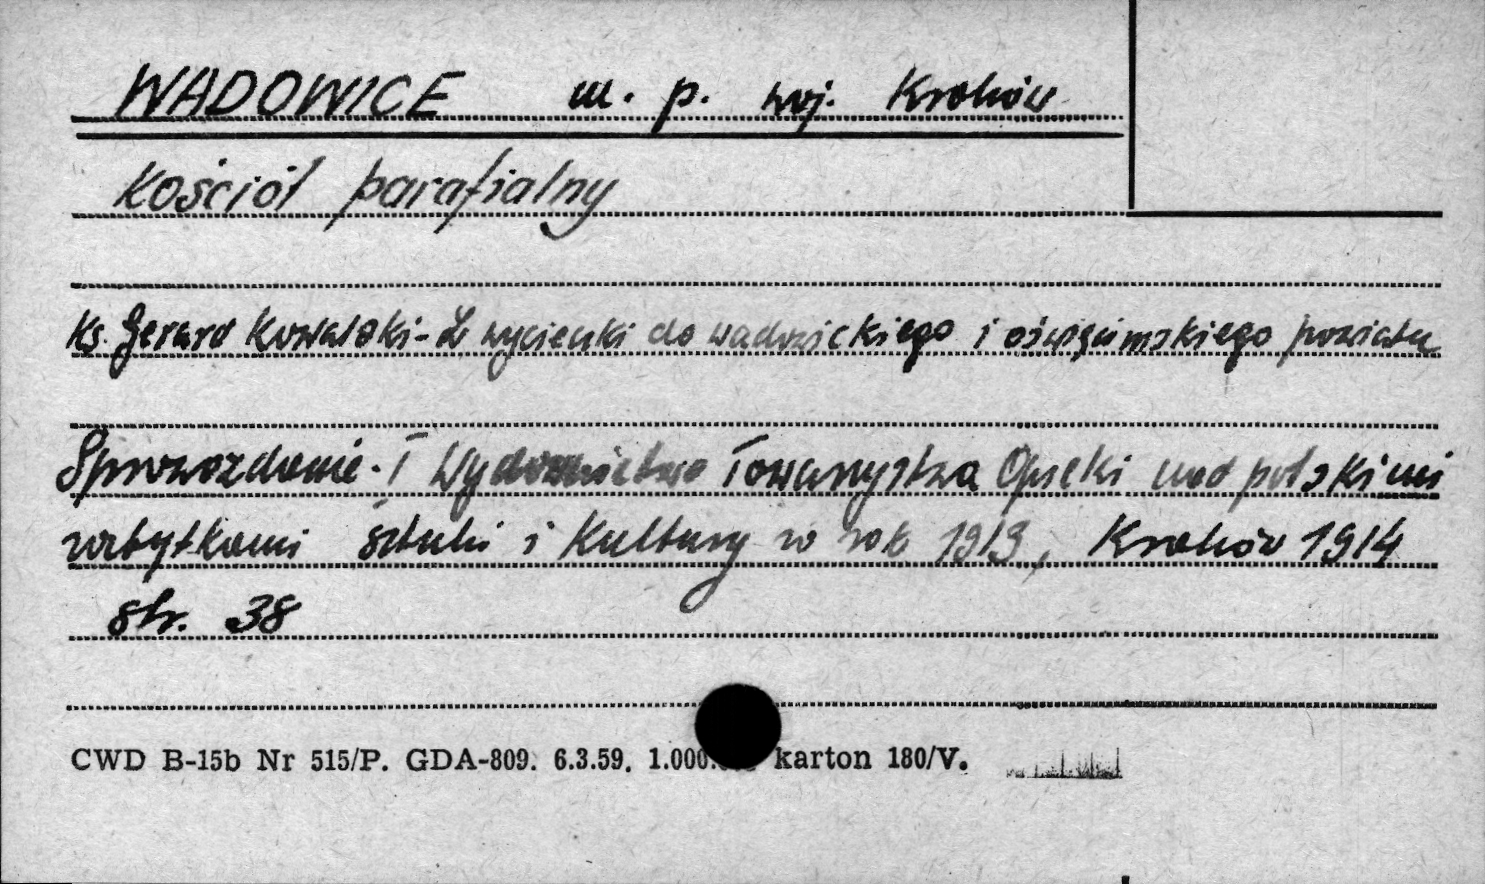 WADOWICE m. p. woj. Kraków
Kościół parafialny
Ks. Gerard Kowalski - Z wycieczki do wadowickiego i oświęcimskiego powiatu
Sprawozdanie i Wydawnictwo Towarzystwa Opieki nad polskimi
zabytkami sztuki i Kultury w rok 1913, Kraków 1914
str. 38
CWD B-15b Nr 515/P. GDA-809. 6.3.59. 1.000. karton 180/V.